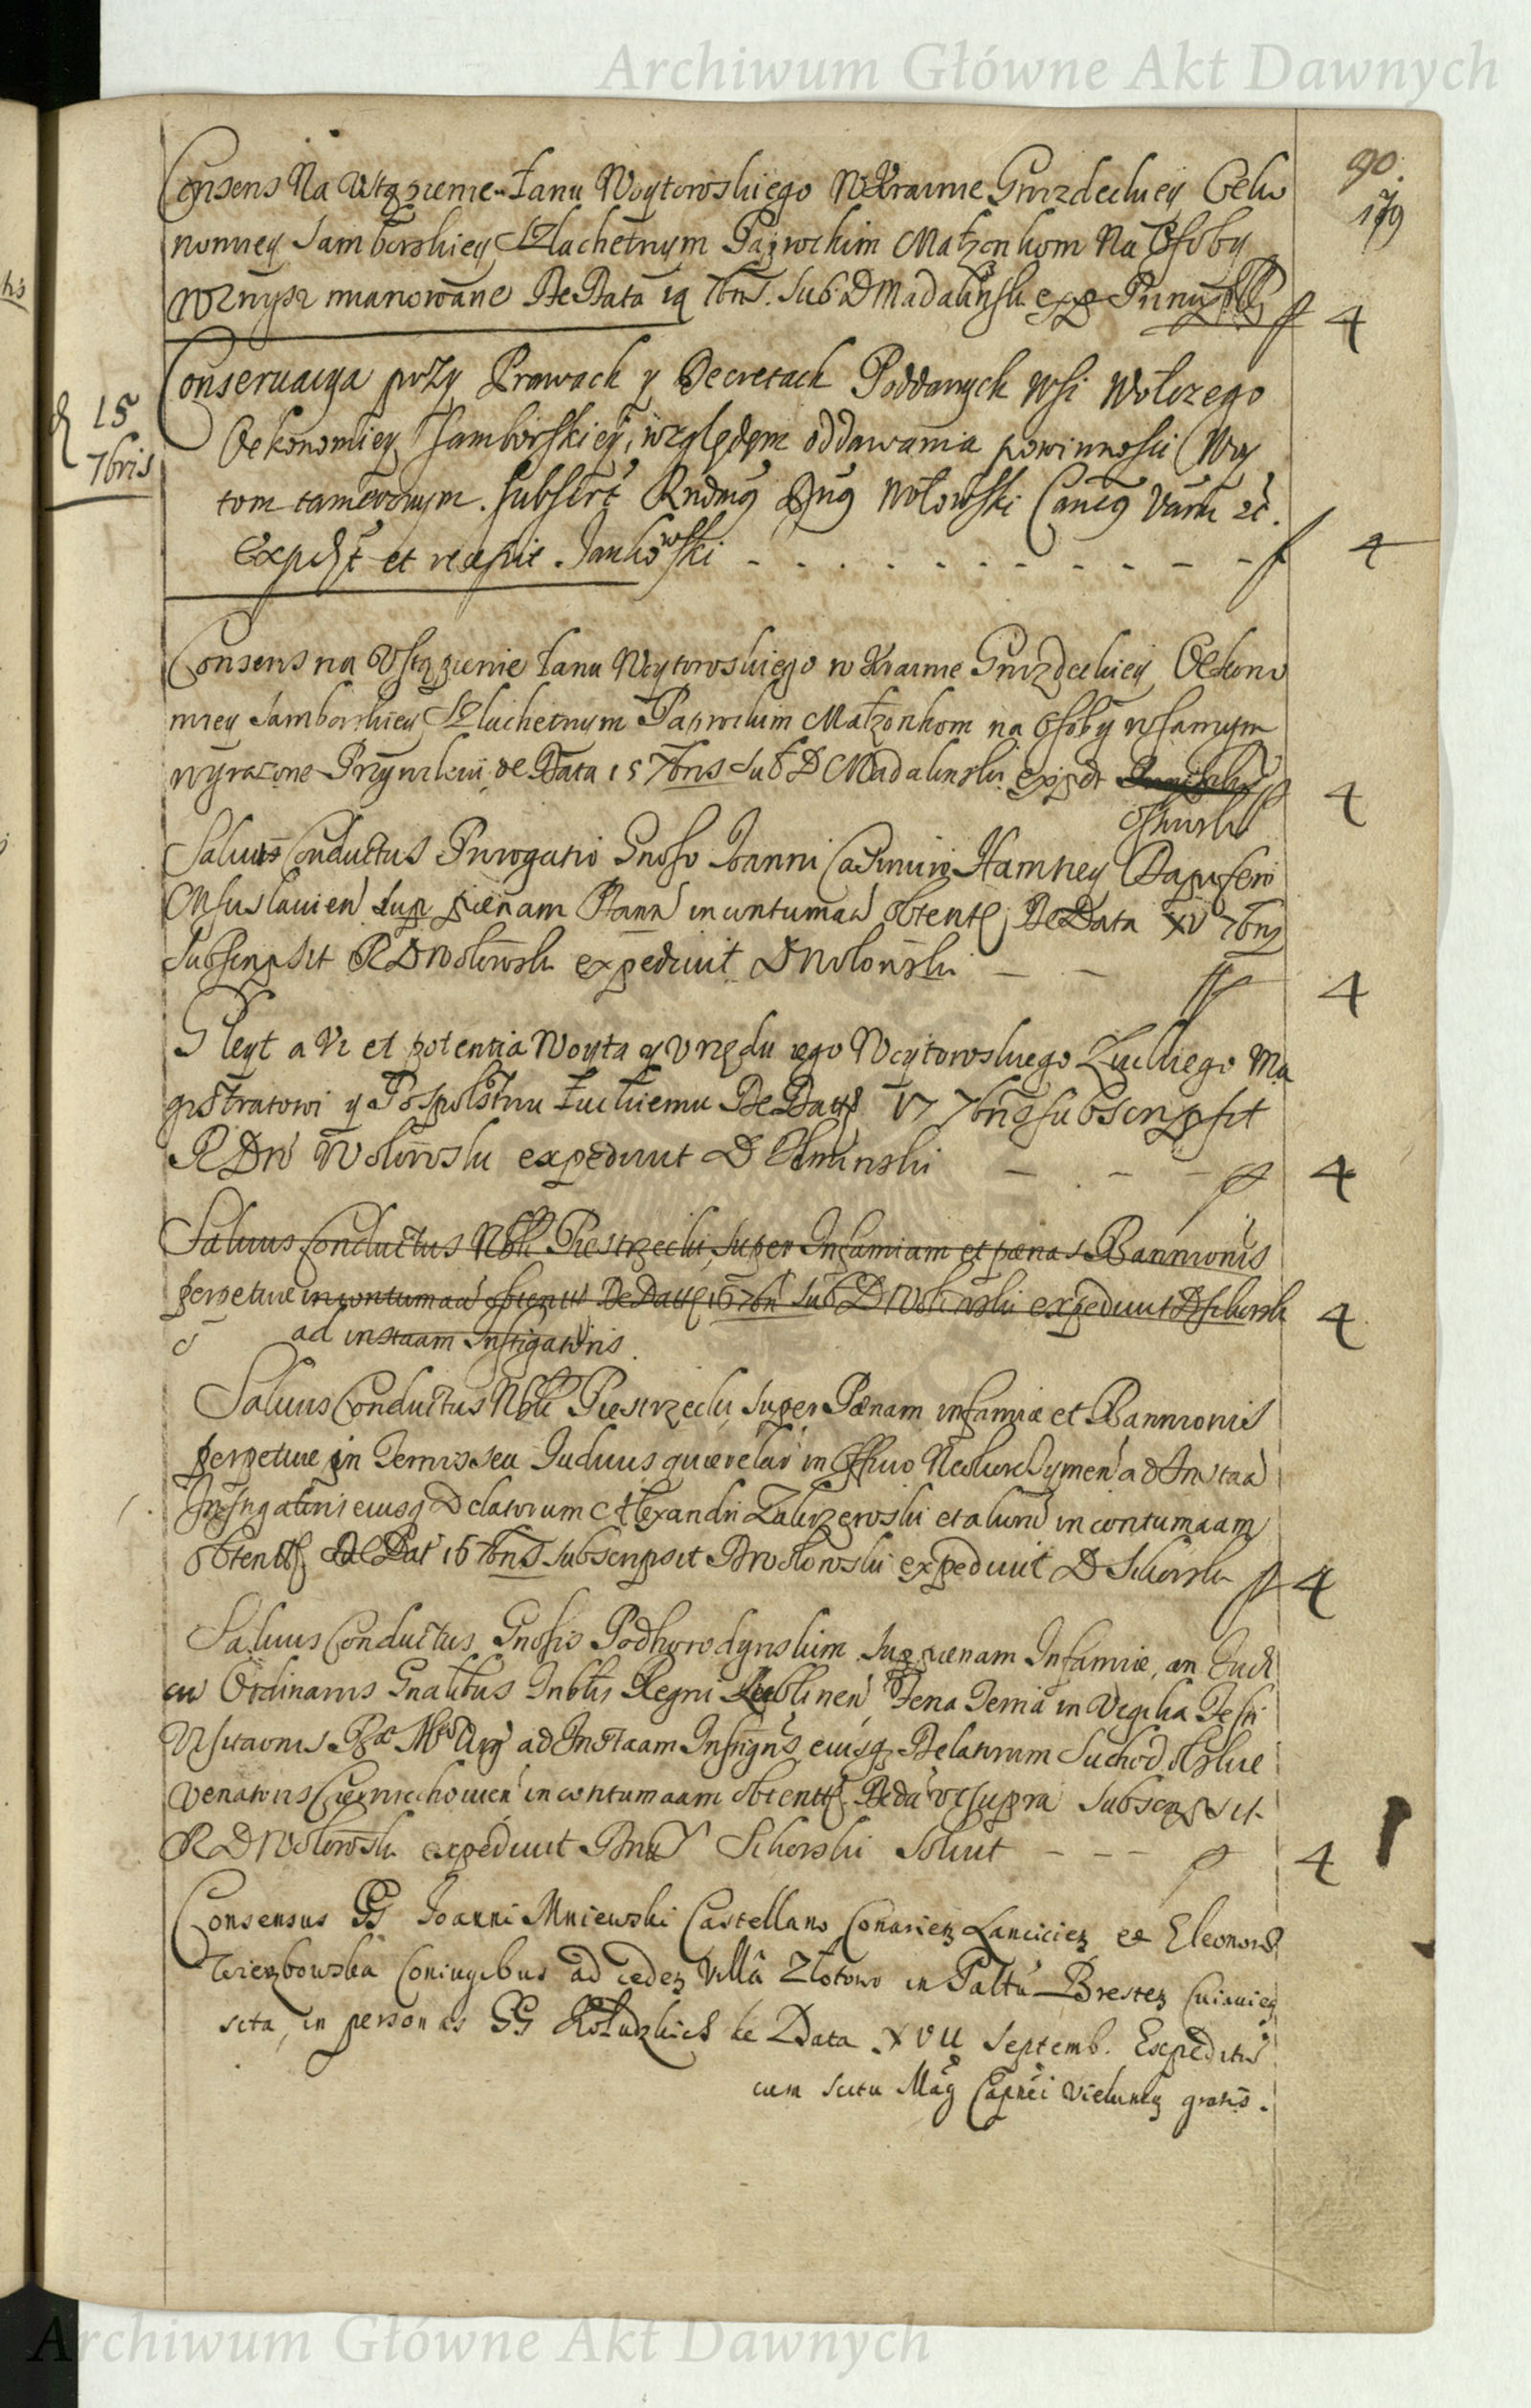 Archiwum Główne Akt Dawnych
90.
179
Consens Na Ustąpienie Łanu Woytowskiego W Krainie Gnizdeckiey Oeko
nomiey Samborskiey Szlachetnym Małzonkom Na Osoby
wznysz mianowane De Data 14 7bris. Sub D Madalinsk exp
4
15
7bris
Conseruacya przy Prawach y Decretach Poddanych wsi Wołczego
Oekonomiey Samborskiey, względem oddawania powinnosci Woy
tom tamecznym. subscrt Rndus Dnus Wołowski Cancus Varm etc.
Expdt et recepit. Jankowski - - - - f 4
Consens na Ustąpienie Łanu Woytowskiego w Krainie Gnizdeckiey Oekono
miey Samborskiey Szlachetnym Małzonkom na Osoby w samym
wyrazone Przywileiu de Data 15 7bris Sub D Madalinski expdt
4
Saluus Conductus Gnoso Ioanni Casimiro Hamney Dapifero
Msuslauien sup pœnam Bann in contumaa obtente De Data XV 7bris
Subscripsit R D Wołowsk expediuit D Wołowski - - 4
Gleyt a Vi et potentia Woyta y Vrzędu iego Woytowskiego Łuckiego Ma
gistratowi y Pospolstwu Łuckiemu De Data 17 7bris subscripsit
R Dn Wołowski expediuit D - - - 4
Saluus Conductus Nobli Piestrzecki super Infamiam et pœnas Bannionis
perpetuæ in contumaa obtentis De Data 16 7bri Sub D Wołowski expediuit D Sikorsk 4
ad instaam Instigatoris.
Saluus Conductus Nobli Piestrzecki super Pœnam infamiæ et Bannionis
perpetuæ in Terris seu Iuduus querelar in Officio ad Instaa
Instigatoris eiusq Delatorum Alexandri et aliorum in contumaam
obtente De Dat 16 7bris subscripsit D Wołowski expediuit D Sikorsk 4
Saluus Conductus Gnosis Podhorodynskim sup pœnam Infamiæ, in Iudi
cu Ordinariis Gnalibus Inbtis Regni Lublinen Feria Tertia in Vigilia Festi
Visitaonis Bæ Mæ Virg ad Instaam Instigris eiusq Delatorum Suchodolskie
Venatoris Czerniechouien in contumaam obtente De da ut supra subscripsit
R D Wołowsk expediuit Sikorski soluit - - - 4
Consensus GG Ioanni Mniewski Castellano Conarien Lancicien et Eleonoræ
Wierzbowska Coniugibus ad ceden Villâ Złotowo in Paltu Bresten Cuiauien
sita, in personas GG Kołudzkich de Data XVII Septemb. Expeditũ
cum scitu Mag Capnei Vielunen gratis.
Archiwum Główne Akt Dawnych